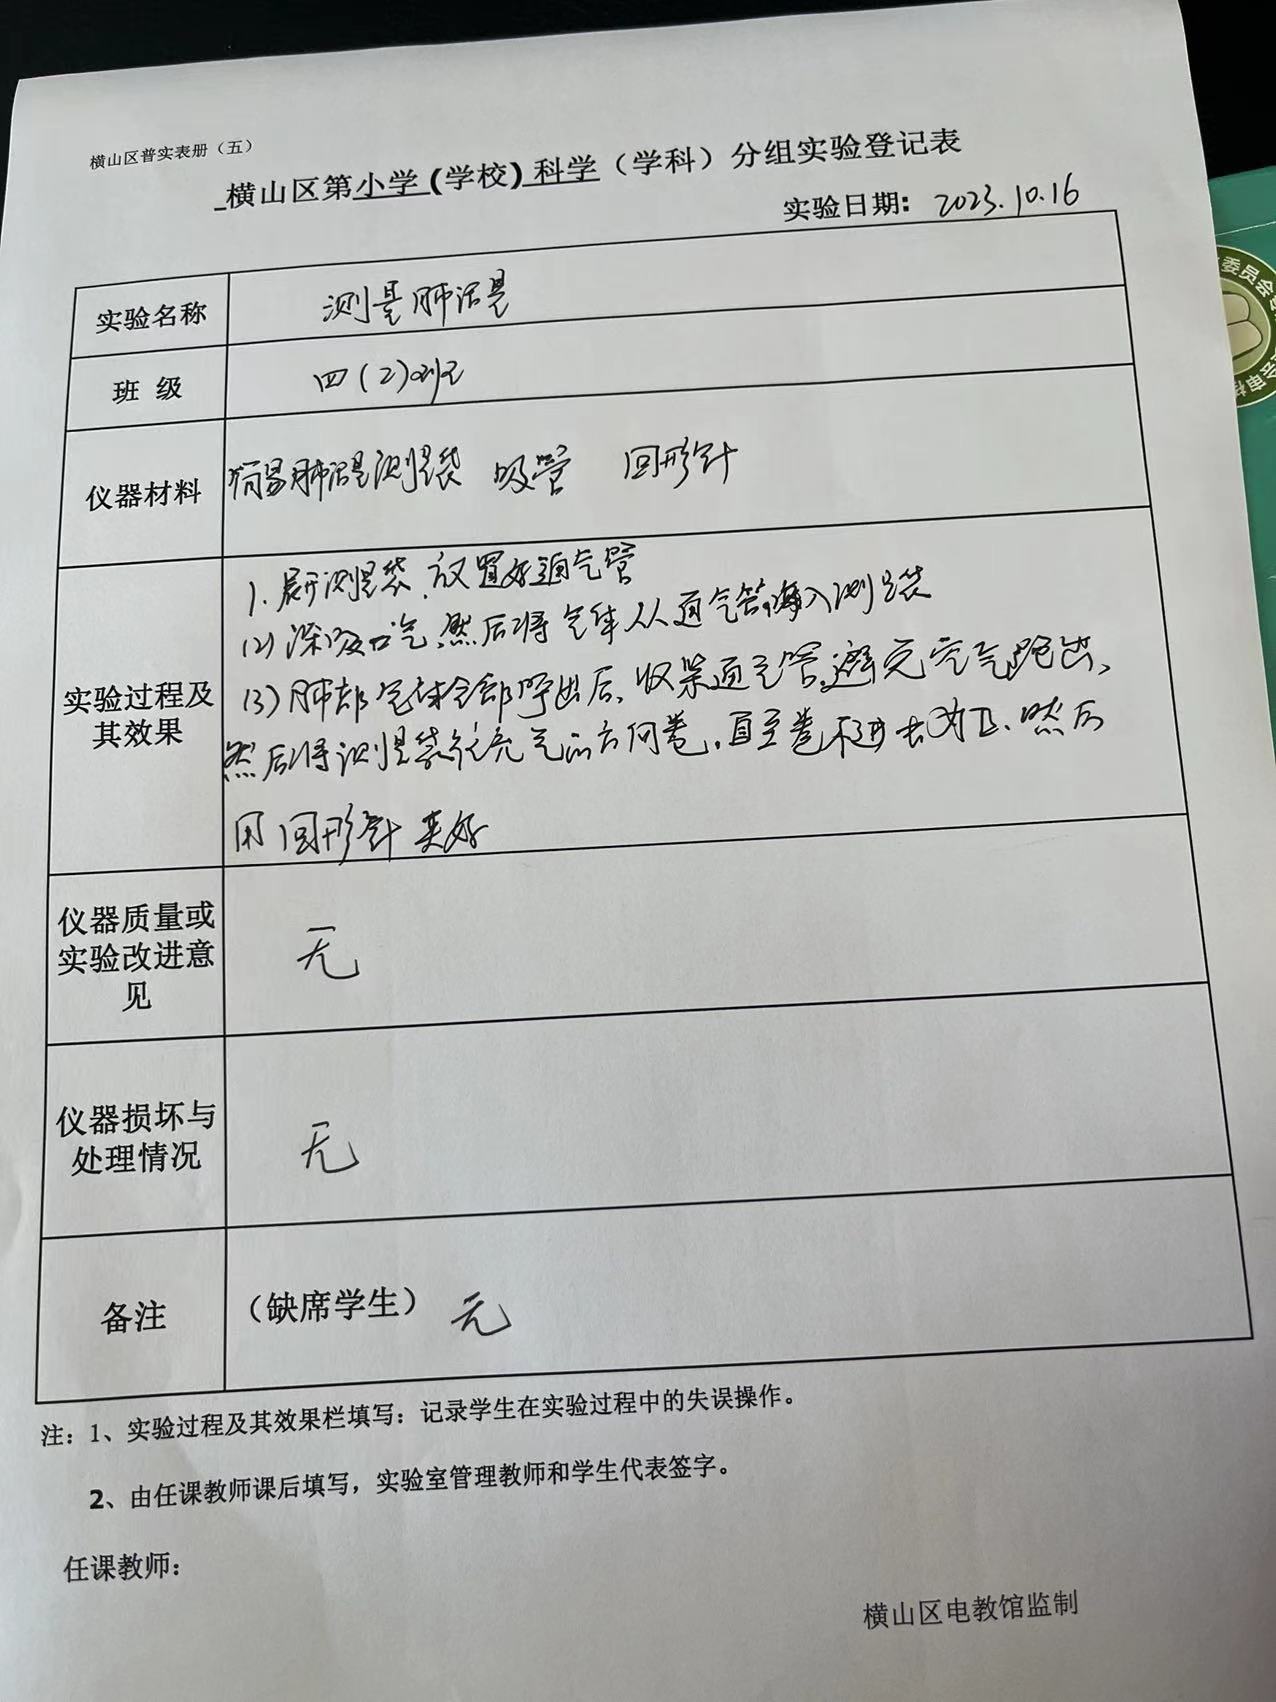 横山区普实表册（五）
横山区第小学(学校)科学（学科）分组实验登记表
实验日期：2023.10.16
委员会
实验名称 测量肺活量
班 级 四(2)班
仪器材料 简易肺活量测量袋 吸管 回形针
实验过程及其效果
1.展开测量袋,放置好通气管
(2)深吸口气,然后将气体从通气管,海入测量袋
(3)肺部气体全部呼出后,收紧通气管,避免空气跑出,
然后将测量袋往充气的方向卷,直至卷不进去为止.然后
用回形针夹好
仪器质量或
实验改进意
见
无
仪器损坏与
处理情况
无
备注 （缺席学生） 无
注：1、实验过程及其效果栏填写：记录学生在实验过程中的失误操作。
2、由任课教师课后填写，实验室管理教师和学生代表签字。
任课教师：
横山区电教馆监制